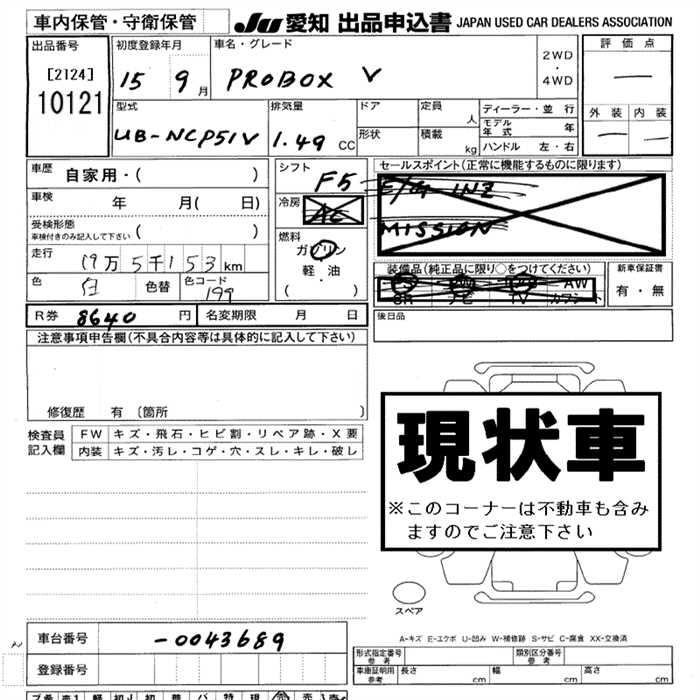 車内保管・守衛保管
JU 愛知 出品申込書 JAPAN USED CAR DEALERS ASSOCIATION
出品番号
[2124]
10121
初度登録年月
15 9月
車名・グレード
PROBOX V
2WD
・
4WD
評価点
—
外装 内装
— —
型式
UB-NCP51V
排気量
1.49 CC
ドア
形状
定員 人
積載 kg
ディーラー・並行
モデル年式 年
ハンドル 左・右
車歴 自家用・( )
車検 年 月( 日)
受検形態
車検付きのみ記入して下さい ( )
走行
19万5千153km
色 白 色替 色コード 199
シフト F5
冷房 AC
燃料
ガソリン
軽・油
( )
セールスポイント(正常に機能するものに限ります)
E/G INZ
MISSION
装備品(純正品に限り○をつけてください)
AW
SR ナビ TV カワシート
新車保証書
有・無
R券 8640 円 名変期限 月 日
後日品
注意事項申告欄(不具合内容等は具体的に記入して下さい)
修復歴 有〔箇所 〕
検査員
記入欄
FW キズ・飛石・ヒビ割・リペア跡・X要
内装 キズ・汚レ・コゲ・穴・スレ・キレ・破レ
現状車
※このコーナーは不動車も含み
ますのでご注意下さい
スペア
A-キズ E-エクボ U-凹み W-補修跡 S-サビ C-腐食 XX-交換済
車台番号 -0043689
登録番号
形式指定番号
参考
類別区分番号
参考
車庫証明用
参考
長さ cm 幅 cm 高さ cm